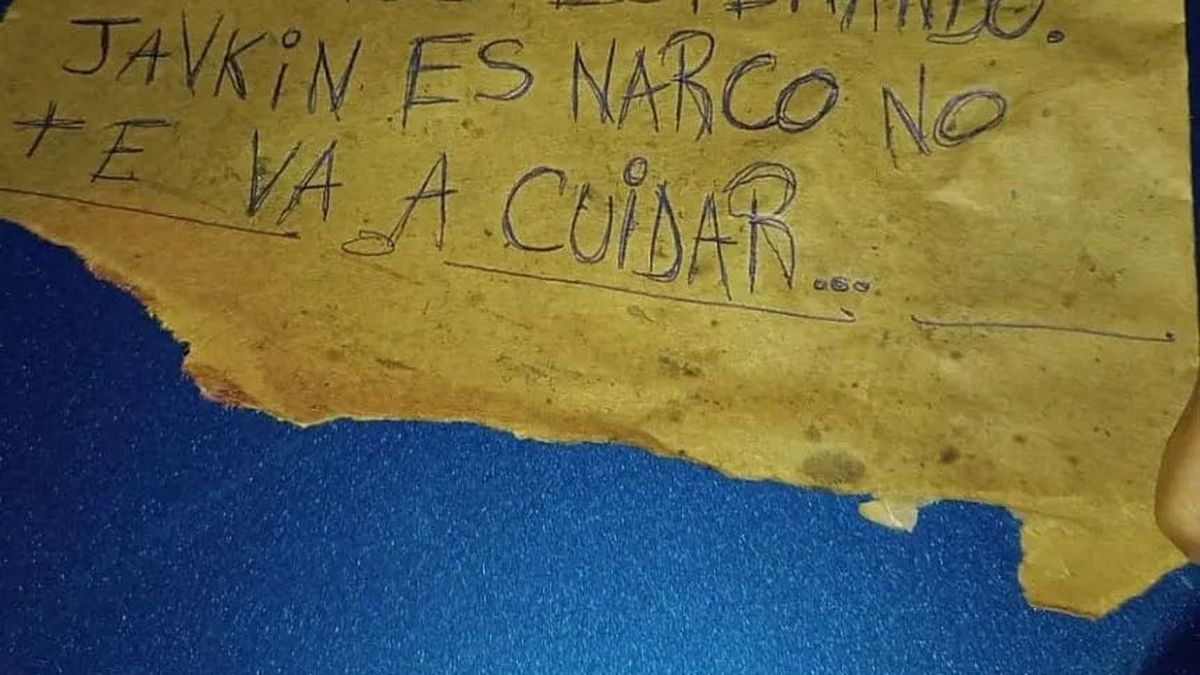 ESPERANDO.
JAVKiN ES NARCO NO
TE VA A CUiDAR...